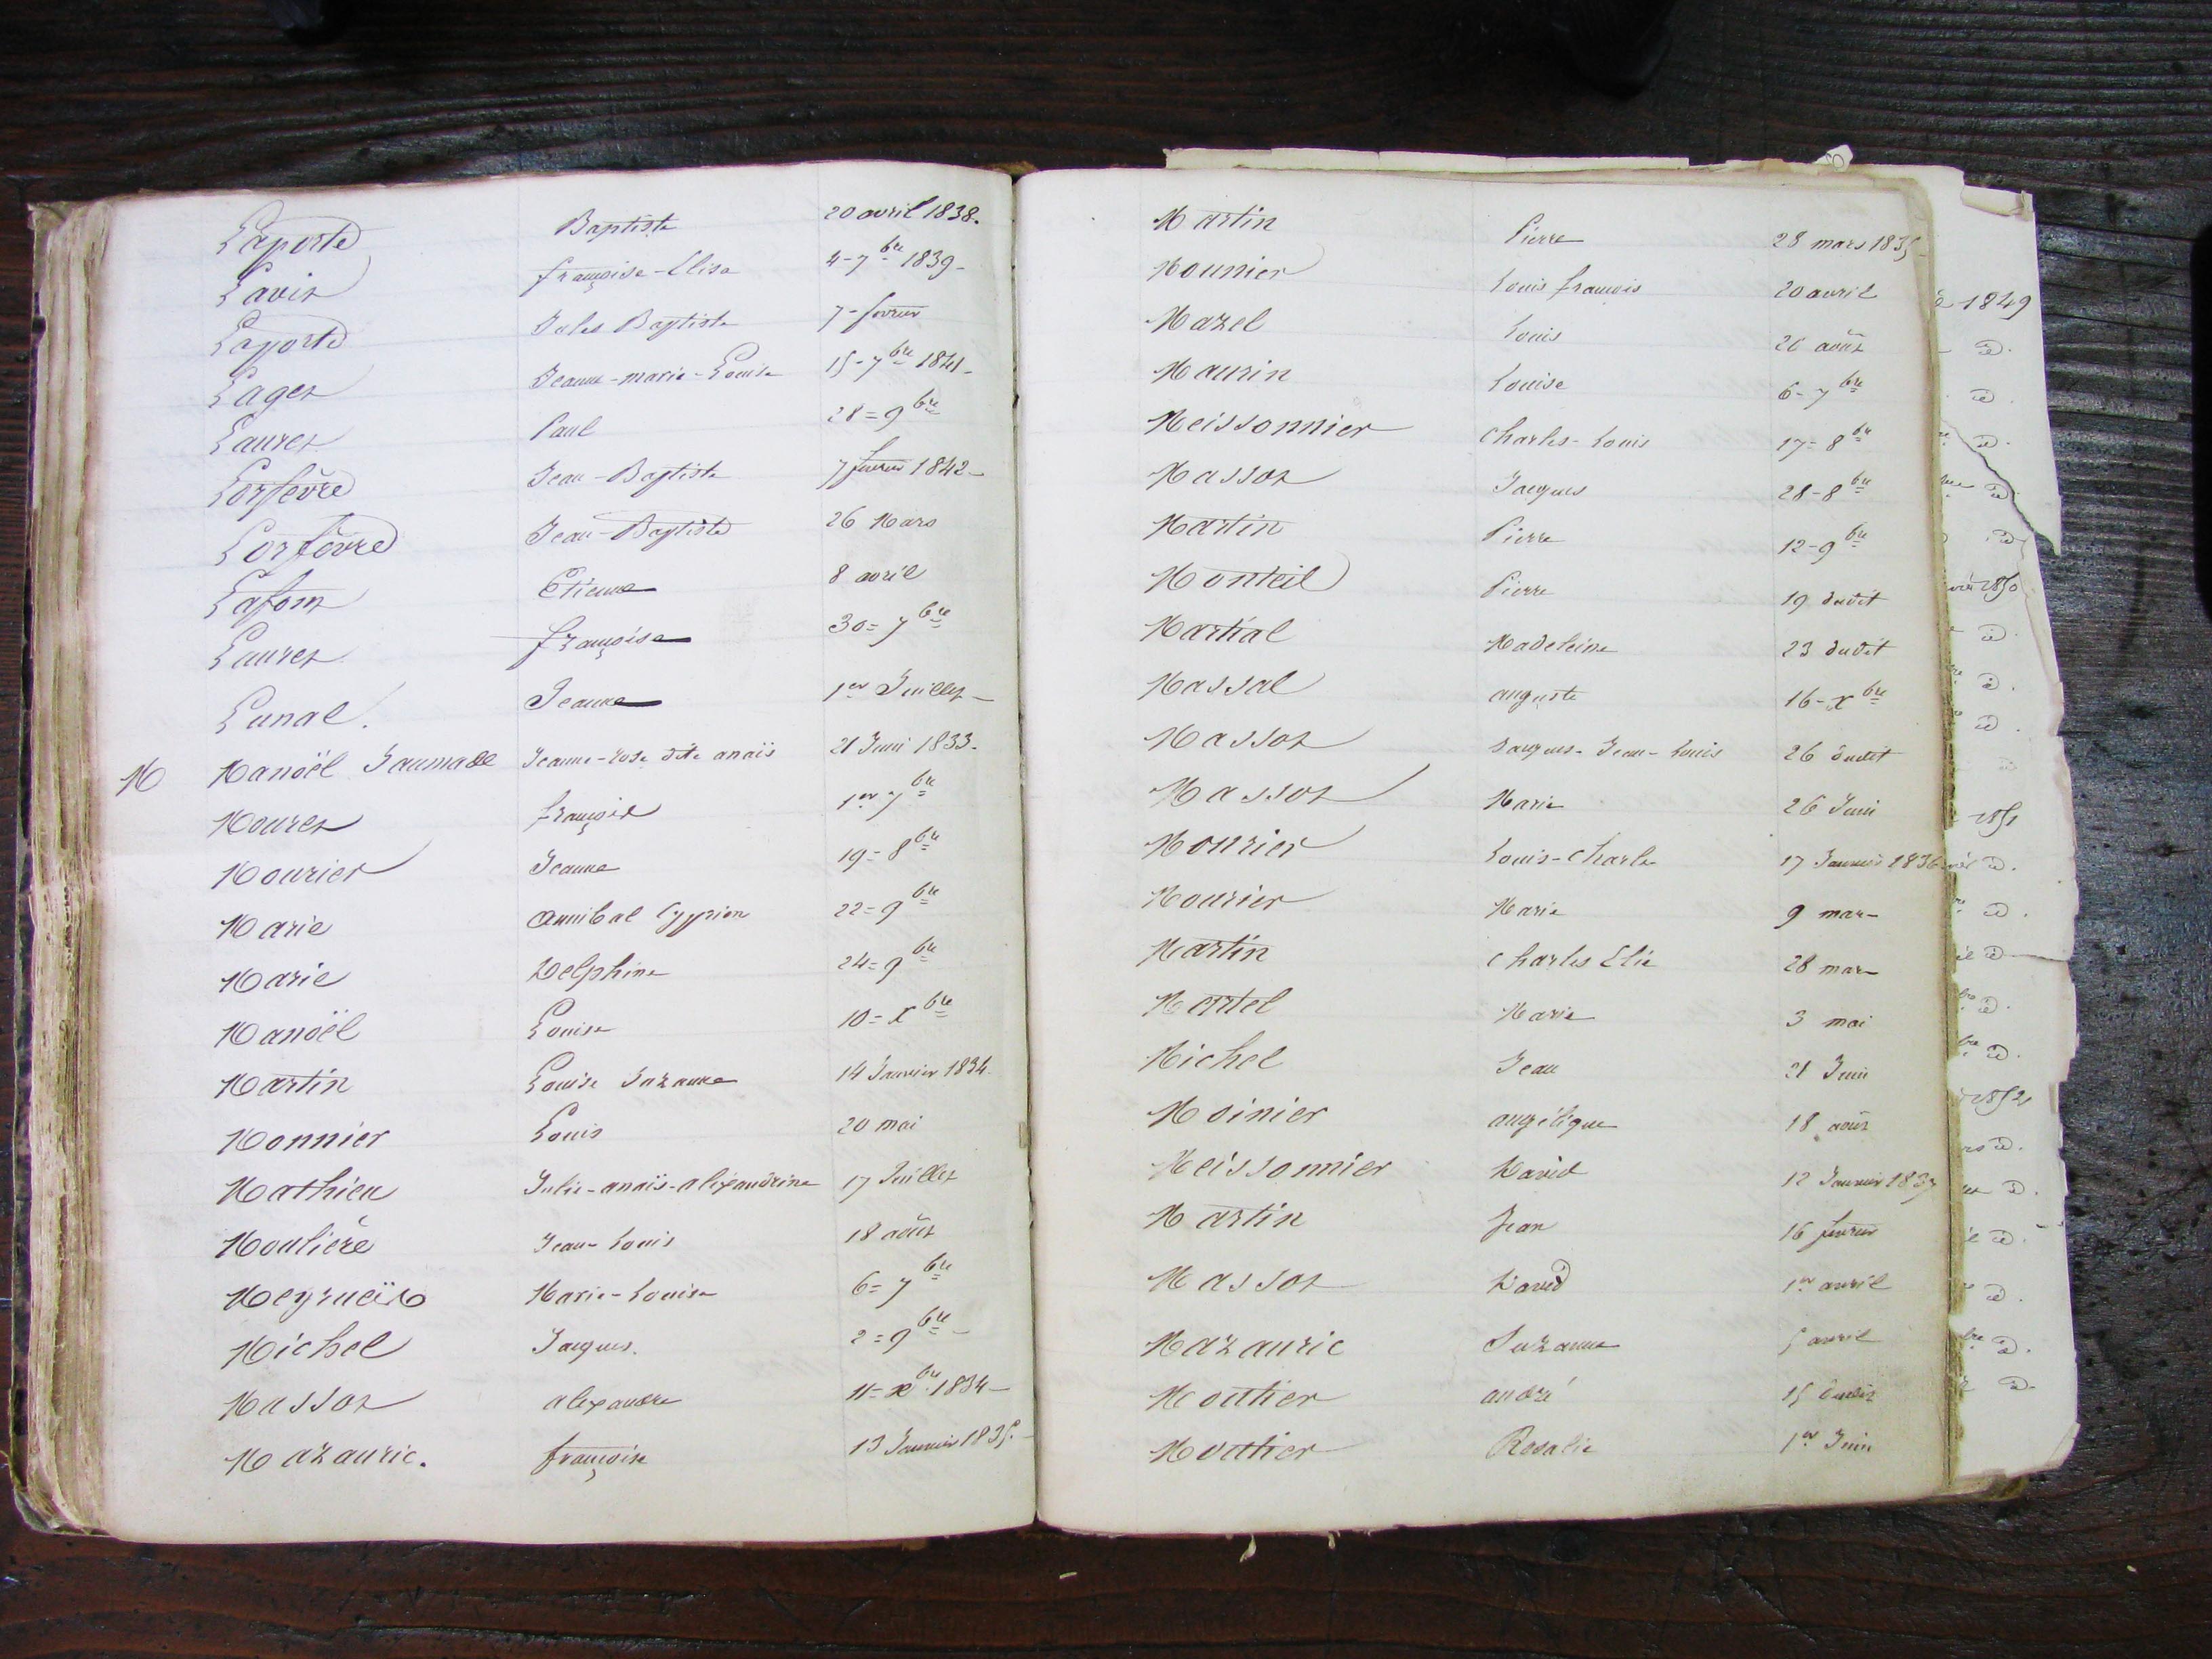 Laporte Baptiste 20 avril 1838.
Lavit françoise-Elisa 4-7bre 1839-
Laporte Jules Baptiste 7-février
Lager Jeanne-marie-Louise 15-7bre 1841-
Lauret Paul 28=9bre
Lorfèvre Jean-Baptiste 7 février 1842-
Lorfèvre Jean-Baptiste 26 Mars
Lafont Etienne 8 avril
Lauret françoise 30=7bre
Lunal. Jeanne 1er Juillet-
M Manoël Saumade Jeanne-rose dite anaïs 21 Juin 1833.
Mouret françois 1er 7bre
Mourier Jeanne 19=8bre
Marie Annibal Cyprien 22=9bre
Marie Delphine 24=9bre
Manoël Louise 10=Xbre
Martin Louise Suzanne 14 Janvier 1834
Monnier Louis 20 mai
Mathieu Julie-anaïs-alexandrine 17 Juillet
Moulière Jean-Louis 18 août
Meyrueïs Marie-Louise 6=7bre
Michel Jaques. 2=9bre-
Massot alexandre 11=xbre 1834-
Mazauric. françoise 13 Janvier 1835.-
Martin Pierre 28 mars 1835-
Mounier Louis françois 20 avril
Mazel Louis août
Maurin Louise 6-7bre
Meissonnier Charles-Louis 17=8bre
Massot Jacques 28-8bre
Martin Pierre 12-9bre
Monteil Pierre 19 dudit
Martial Madeleine 23 dudit
Massal auguste 16-xbre
Massot Jaques-Jean-Louis 26 dudit
Massot Marie 26 Juin
Mourier Louis-Charle 17 Janvier 1836
Mourier Marie 9 mar-
Martin Charles Elie 28 mar-
Martel Marie 3 mai
Michel Jean 21 Juin
Moinier angélique 18 août
Meissonnier David 12 Janvier 1837
Martin Jean 16 février
Massot David 1er avril
Mazauric Suzanne 5 avril
Moutier andré 15 dudit
Moutier Rosalie 1er Juin
1849
d.
d.
d.
d
d
1850
d
d.
d.
1851
d.
d.
d
d.
d.
1852
d.
d.
d.
d.
d.
d.